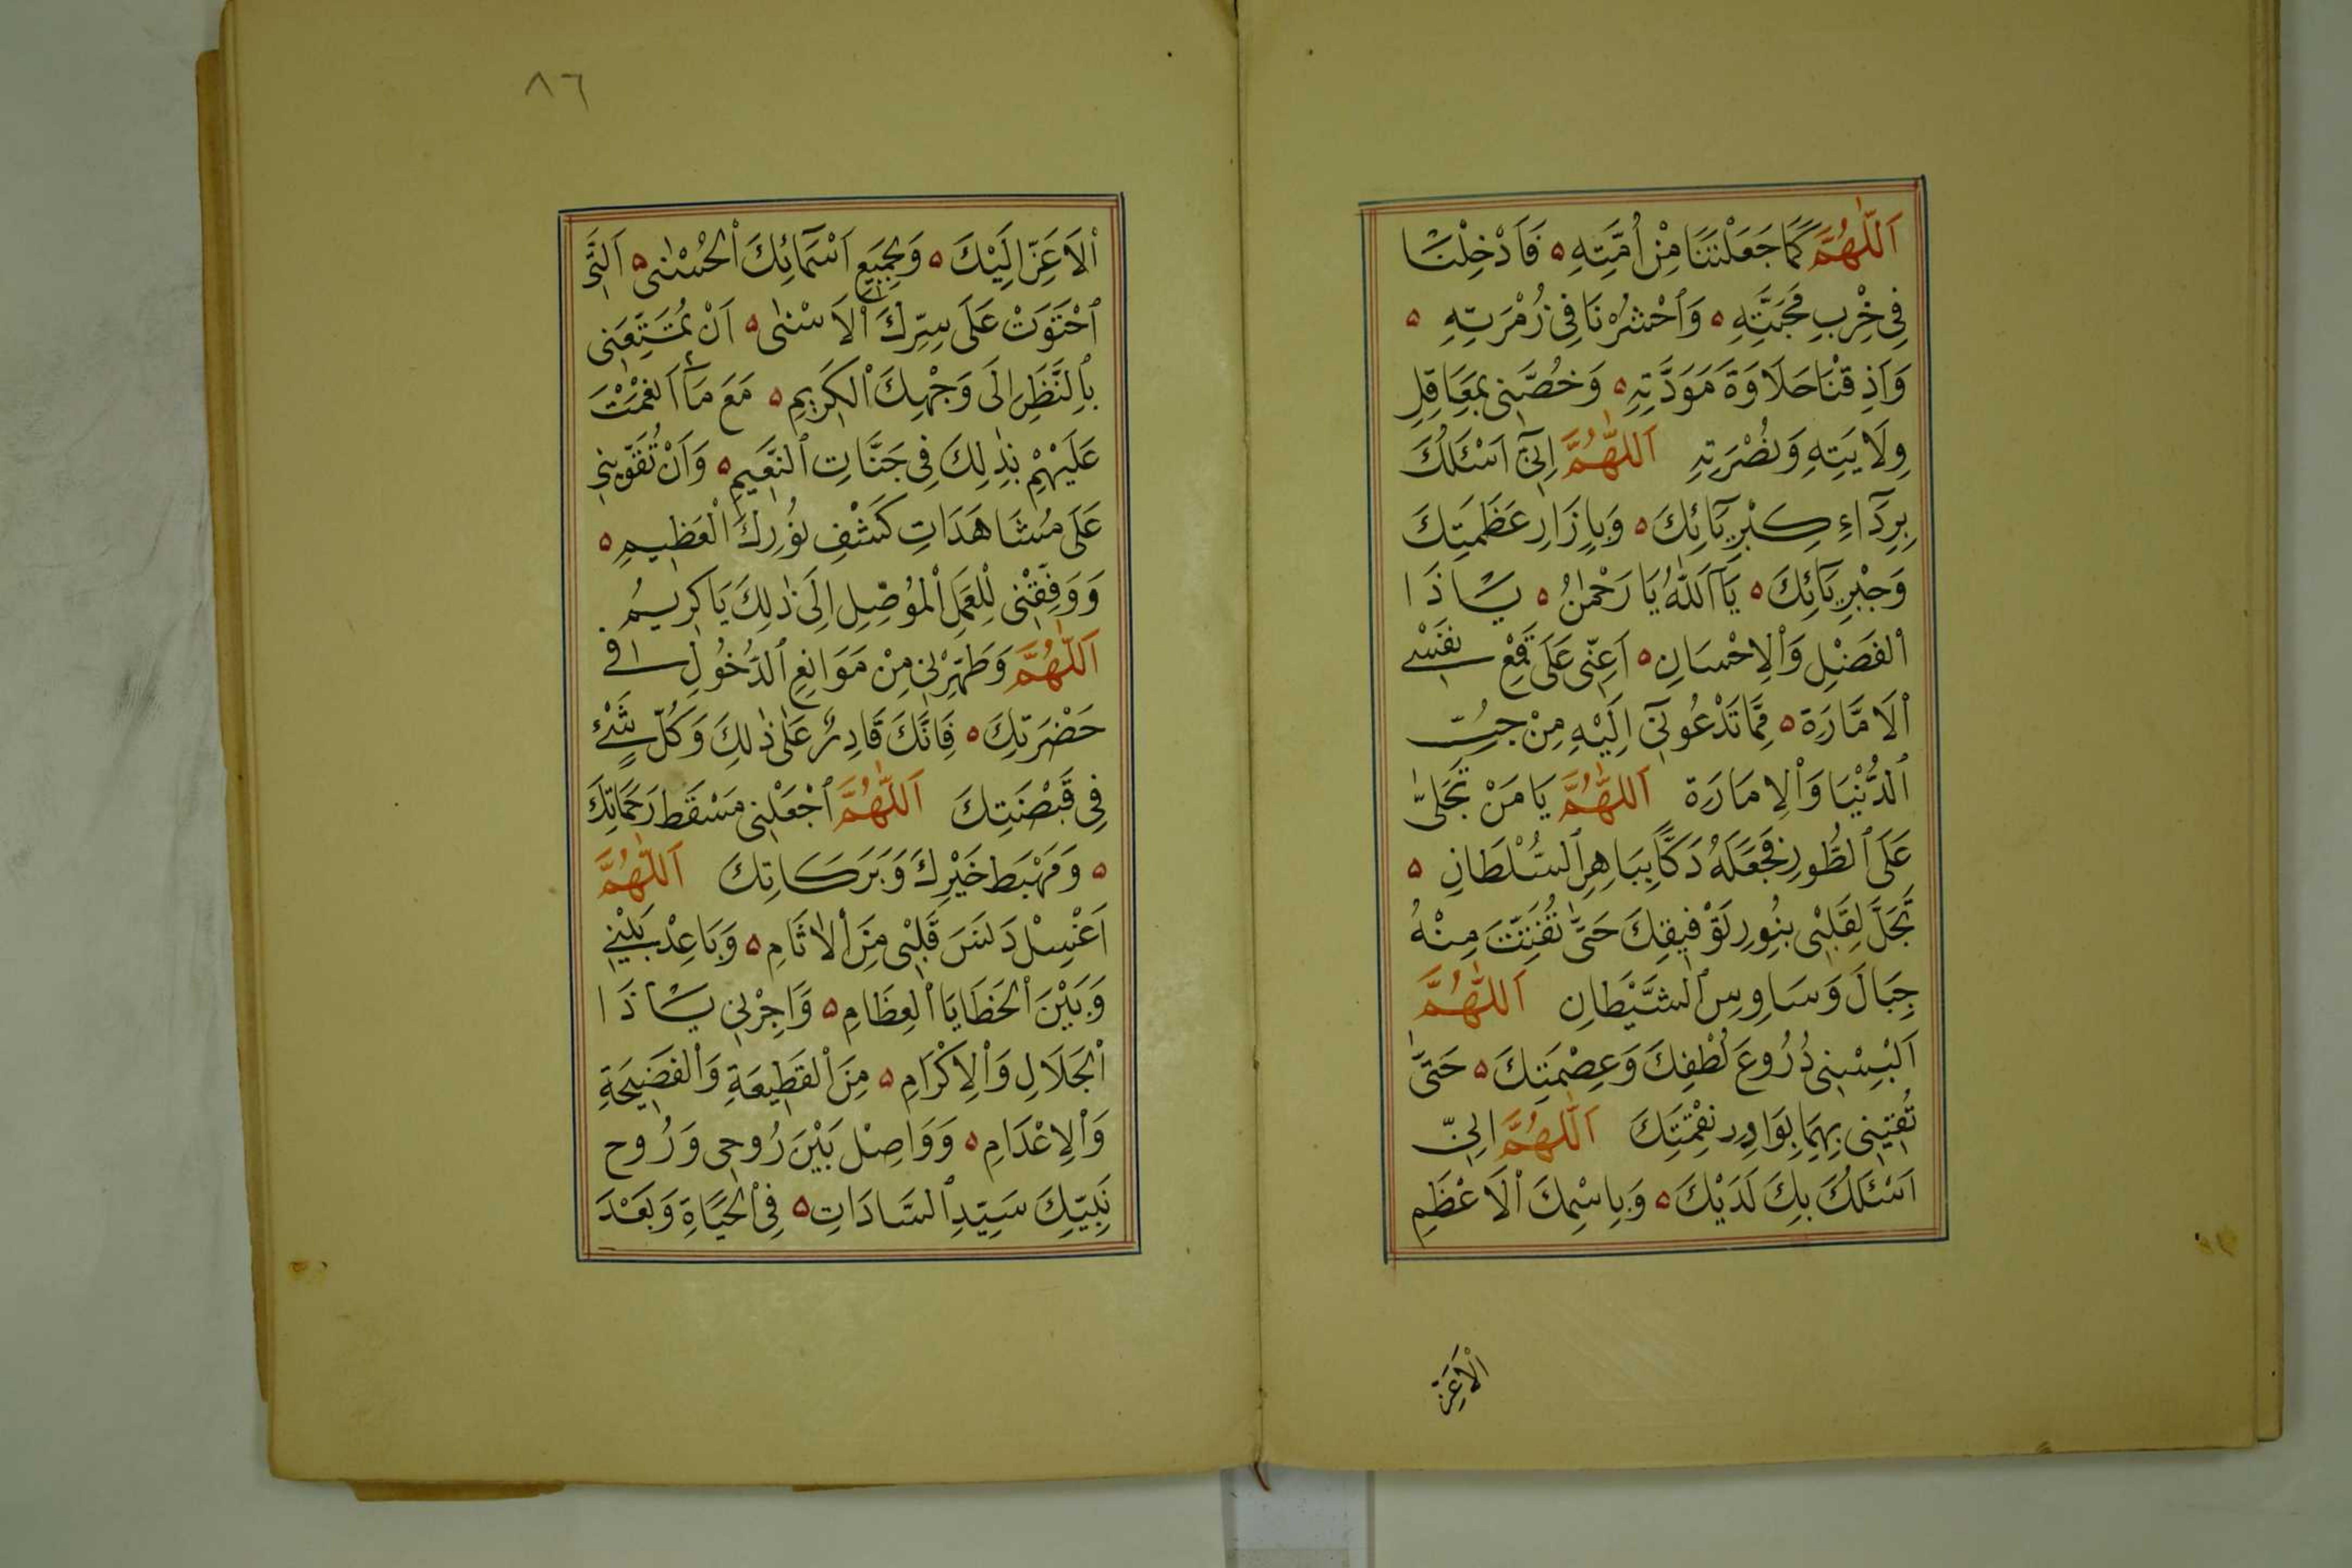 اَللّٰهُمَّ كَمَا جَعَلْتَنَا مِنْ اُمَّتِهِ ه فَاَدْخِلْنَا
فِى حِزْبِ مَحَبَّتِهِ ه وَٱحْشُرْنَا فِى زُمْرَتِهِ ه
وَاَذِقْنَا حَلَاوَةَ مَوَدَّتِهِ ه وَخُصَّنِى بِمَعَاقِلِ
وِلَايَتِهِ وَنُصْرَتِهِ اَللّٰهُمَّ اِنِّىٓ اَسْئَلُكَ
بِرِدَآءِ كِبْرِيَآئِكَ ه وَبِاِزَارِ عَظَمَتِكَ
وَجْبْرِيَآئِكَ ه يَآ اَللّٰهُ يَا رَحْمٰنُ ه يَا ذَا
ٱلْفَضْلِ وَٱلْاِحْسَانِ ه اَعِنِّى عَلَى قَمْعِ نَفْسِى
ٱلْاَمَّارَةِ ه مِمَّا تَدْعُونِىٓ اِلَيْهِ مِنْ حُبِّ
ٱلدُّنْيَا وَٱلْاِمَارَةِ اَللّٰهُمَّ يَا مَنْ تَجَلّٰى
عَلَى ٱلطُّورِ فَجَعَلَهُ دَكًّا بِبَاهِرِ ٱلسُّلْطَانِ ه
تَجَلَّ لِقَلْبِى بِنُورِ تَوْفِيقِكَ حَتّٰى تُفَتِّتَ مِنْهُ
جِبَالَ وَسَاوِسِ ٱلشَّيْطَانِ اَللّٰهُمَّ
اَلْبِسْنِى دُرُوعَ لُطْفِكَ وَعِصْمَتِكَ ه حَتّٰى
تُقِيَنِى بِهِمَا بَوَادِرَ نِقْمَتِكَ اَللّٰهُمَّ اِنِّى
اَسْئَلُكَ بِكَ لَدَيْكَ ه وَبِاسْمِكَ ٱلْاَعْظَمِ
ٱلْاَعَزِّ
٨٦
ٱلْاَعَزِّ اِلَيْكَ ه وَبِجَمِيعِ اَسْمَآئِكَ ٱلْحُسْنٰى ه اَلَّتِى
ٱحْتَوَتْ عَلَى سِرِّكَ ٱلْاَسْنٰى ه اَنْ تُمَتِّعَنِى
بِٱلنَّظَرِ اِلَى وَجْهِكَ ٱلْكَرِيمِ ه مَعَ مَنْ اَنْعَمْتَ
عَلَيْهِمْ بِذٰلِكَ فِى جَنَّاتِ ٱلنَّعِيمِ ه وَاَنْ تُقَوِّيَنِى
عَلَى مُشَاهَدَاتِ كَشْفِ نُورِكَ ٱلْعَظِيمِ ه
وَوَفِّقْنِى لِلْعَمَلِ ٱلْمُوْصِلِ اِلَى ذٰلِكَ يَا كَرِيمُ
اَللّٰهُمَّ وَطَهِّرْنِى مِنْ مَوَانِعِ ٱلدُّخُولِ فِى
حَضْرَتِكَ ه فَاِنَّكَ قَادِرٌ عَلَى ذٰلِكَ وَكُلُّ شَيْئٍ
فِى قَبْضَتِكَ اَللّٰهُمَّ ٱجْعَلْنِى مَسْقَطَ رَحَمَاتِكَ
ه وَمَهْبَطَ خَيْرِكَ وَبَرَكَاتِكَ اَللّٰهُمَّ
اَغْسِلْ دَنَسَ قَلْبِى مِنَ ٱلْاٰثَامِ ه وَبَاعِدْ بَيْنِى
وَبَيْنَ ٱلْخَطَايَا ٱلْعِظَامِ ه وَاَجِرْنِى يَا ذَا
ٱلْجَلَالِ وَٱلْاِكْرَامِ ه مِنَ ٱلْقَطِيعَةِ وَٱلْفَضِيحَةِ
وَٱلْاِعْدَامِ ه وَوَاصِلْ بَيْنَ رُوحِى وَرُوحِ
نَبِيِّكَ سَيِّدِ ٱلسَّادَاتِ ه فِى ٱلْحَيَاةِ وَبَعْدَ